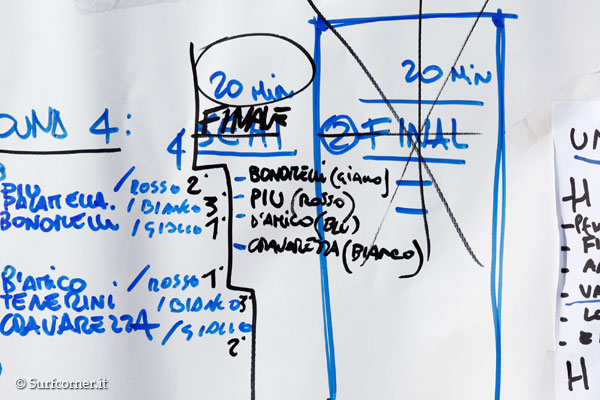 OUND 4:
PIU /ROSSO 2°
PALATTELLA. /BIANCO 3°
BONDRELLI /GIALLO 1°
D'AMICO /ROSSO 1°
TENERINI /BIANCO 3°
CRAVAREZZA /GIALLO 2°
20 Min
FINALE
4
- BONDRELLI (GIALLO)
- PIU (ROSSO)
- D'AMICO (BLU)
- CRAVAREZZA (BIANCO)
20 Min
2 FINAL
UN
H
H
© Surfcorner.it